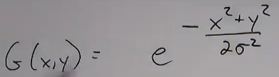 G(x,y) = e^{-\frac{x^2+y^2}{2σ^2}}